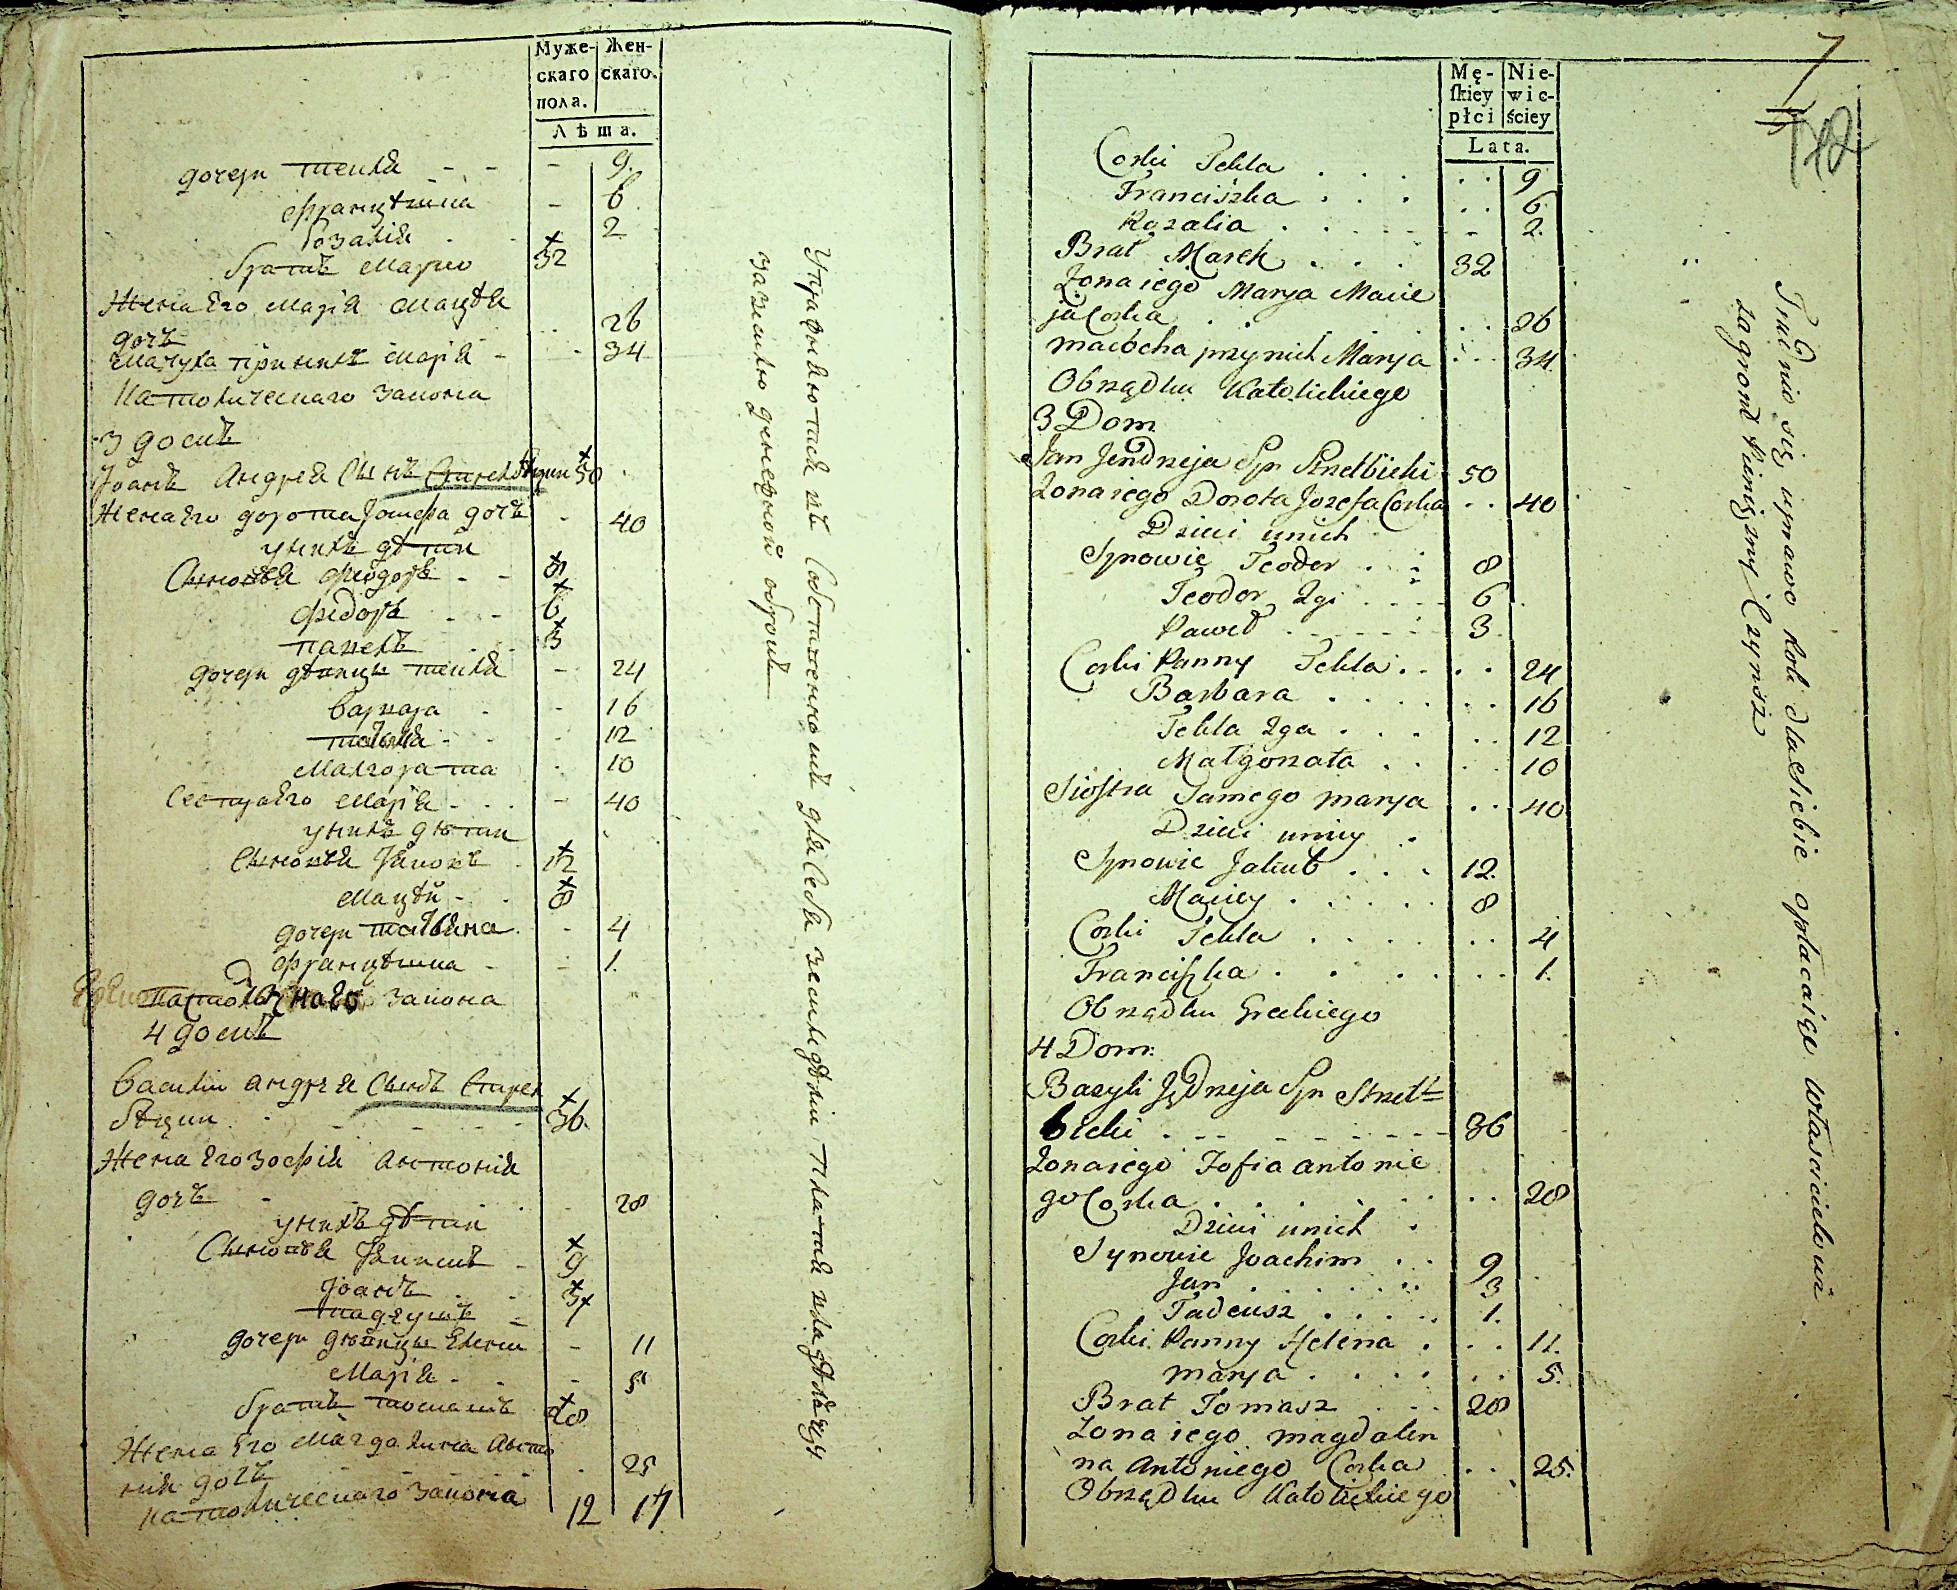 Муже-скаго пола.
Жен-скаго.
Лѣта.
дочери текля - - - 9.
францѣшка - 6
Розалія - 2
братъ Марко 32
Жена Его Марія Мацѣя
дочь 26
Мачуха при нихъ Марія - 34
Католическаго закона
3 домъ
Іоанъ Андрея Сынъ 50
Жена Его дорота Іозефа дочь - 40
у нихъ дѣти
Сыновья Феодоръ - - 8
Федоръ - - 6
павелъ 3
дочери дѣвицы текля - 24
варвара - - 16
текля - - 12
Малгората - 10
Сестра Его Марія - - - 40
у нихъ дѣти
Сыновья Якубъ - 12
Мацѣй - - 8
дочери - 4
францѣшка - - 1.
закона
4 домъ
Василій андрея Сынъ Стрел
бѣцки - - - - 36.
Жена Его Зофія Антонія
дочь - - 28
у нихъ дѣти
Сыновья Якимъ - 9
Іоанъ - - 3
тадеушъ - 1
дочери дѣвицы Елена - 11
Марія - - - 5
братъ томашъ 28
Жена Его Магдалина Анто
нія дочь - - - - 25
католическаго закона
12 17
Упражняются въ собственномъ для себя земледѣліи платя владѣльцу
за землю денежной оброкъ
Mę-skiey płci
Nie-wie-ściey
Lata.
7
Corki Tekla . . . . . 9
Franciszka . . . . . 6
Rozalia . . . . . 2.
Brat Marek . . . 32
Zona iego Marya Macie
ja Corka . . . . . . 26
macocha przy nich Marya . . . 34
Obrządku Katolickiego
3 Dom
Jan Jendrzeja Syn Strzelbicki 50
Zona iego Dorota Jozefa Corka . . 40
Dzieci unich
Synowie Teodor . . 8
Teodor 2gi . . . . 6
Paweł . . . . . . 3.
Corki Panny Tekla . . . . 24
Barbara . . . . . . 16
Tekla 2ga . . . . . 12
Małgorzata . . . . 10
Siostra Samego marya . . 40
Dzieci uniey .
Synowie Jakub . . . 12.
Maciey . . . . . 8
Corki Tekla . . . . . . 4
Franciszka . . . . . . 1.
Obrządku Greckiego
4 Dom.
Bazyli Jędrzeja Syn Strzel=
bicki . - - - - - - - 36
Zona iego Zofia antonie
go Corka . . . . . . . 28
Dzieci unich .
Synowie Joachim . . 9
Jan . . . . . . 3
Tadeusz . . . . . 1.
Corki Panny Helena . . . 11.
marya . . . . . . 5.
Brat Tomasz . . . 28
Zona iego magdalen
na Antoniego Corka . . 25.
Obrządku Katolickiego
Trudnią się uprawą roli dla siebie opłacaiąc właścicielowi
za gront Pieniężny Czynsz